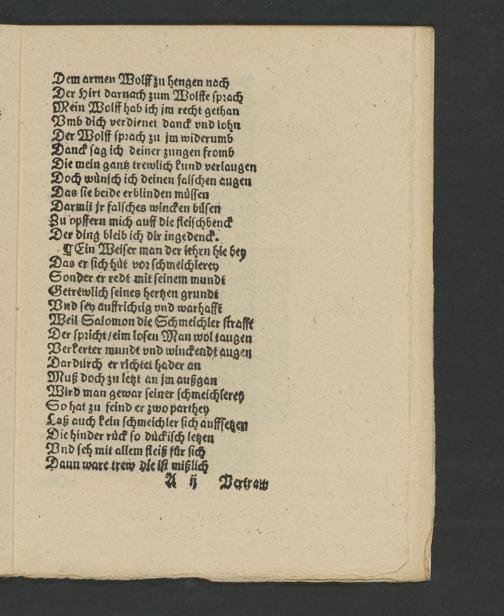 Dem armen Wolff zu hengen nach
Der Hirt darnach zum Wolffe sprach
Mein Wolff hab ich jm recht gethan
Vmb dich verdienet danck vnd lohn
Der Wolff sprach zu jm widerumb
Danck sag ich deiner zungen fromb
Die mein gantz trewlich kund verlaugen
Doch wünsch ich deinen falschen augen
Das sie beide erblinden müssen
Darmit jr falsches wincken büsen
Zu opffern mich auff die fleischbenck
Der ding bleib ich dir ingedenck.
¶ Ein Weiser man der lehrn hie bey
Das er sich hüt vor schmeichlerey
Sonder er redt mit seinem mundt
Getrewlich seines hertzen grundt
Vnd sey auffrichrig vnd warhafft
Weil Salomon die Schmeichler strafft
Der spricht/eim losen Man wol taugen
Verkerter mundt vnd winckendt augen
Dardurch er richtet hader an
Muß doch zu letzt an jm außgan
Wird man gewar seiner schmeichlerey
So hat zu feind er zwo parthey
Laß auch kein schmeichler sich auffsetzen
Die hinder rück so dückisch letzen
Vnd seh mit allem fleiß für sich
Dann ware trew die ist mißlich
A ij Vertraw